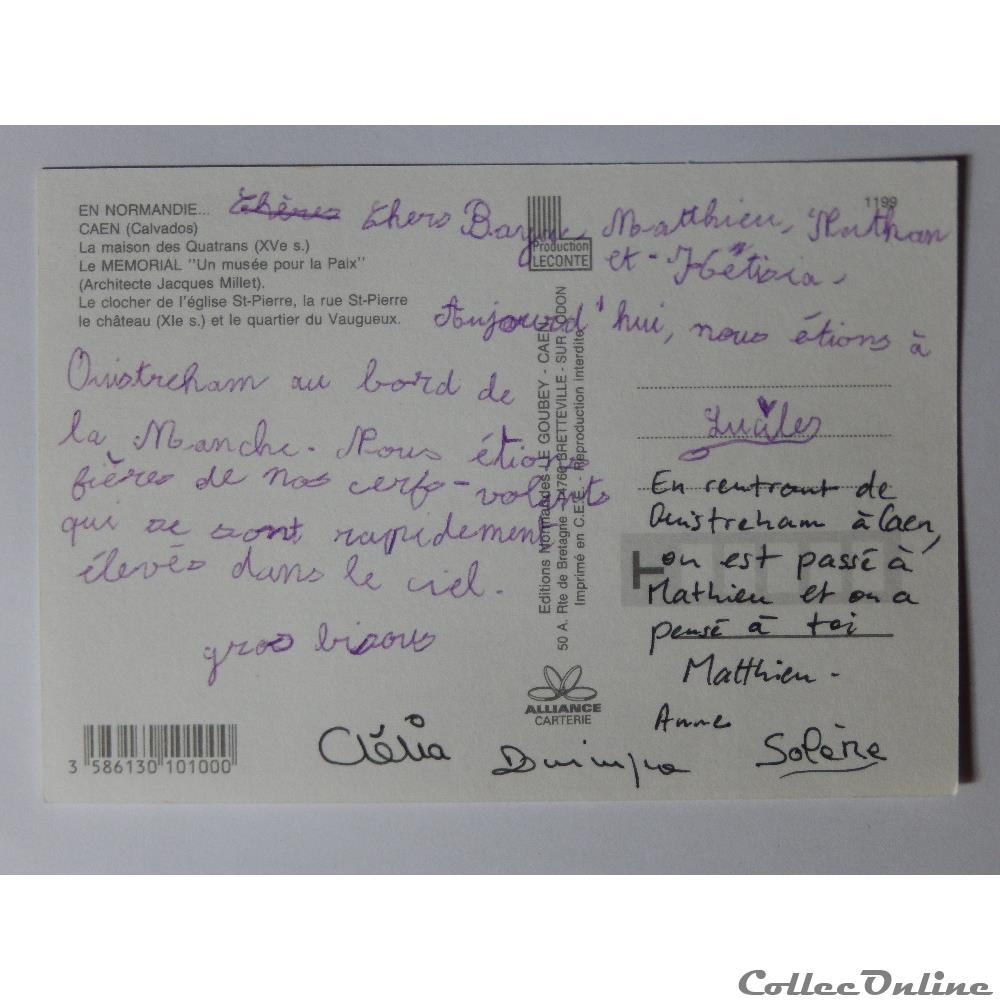 EN NORMANDIE...
CAEN (Calvados)
La maison des Quatrans (XVe s.)
Le MEMORIAL "Un musée pour la Paix"
(Architecte Jacques Millet).
Le clocher de l'église St-Pierre, la rue St-Pierre
le château (XIe s.) et le quartier du Vaugueux.
1199
Production
LECONTE
Chers Matthieu, Nathan
et
Aujourd'hui, nous étions à
Ouistreham au bord de
la Manche. Nous étions
fières de nos cerfs-volants
qui se sont rapidement
élevés dans le ciel.
gros bisous
Editions Normandes LE GOUBEY - CAEN
50 A. Rte de Bretagne - 14760 BRETTEVILLE - SUR - ODON
Imprimé en C.E.E. - Reproduction interdite
En rentrant de
Ouistreham à Caen,
on est passé à
Mathieu et on a
pensé à toi
Matthieu.
Anne
Solène
Clélia
ALLIANCE
CARTERIE
3 586130 101000
CollecOnline